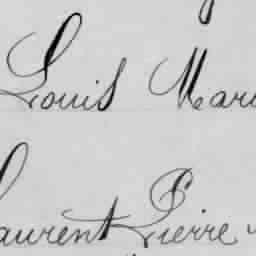 Louis Mari
Laurent Pierre